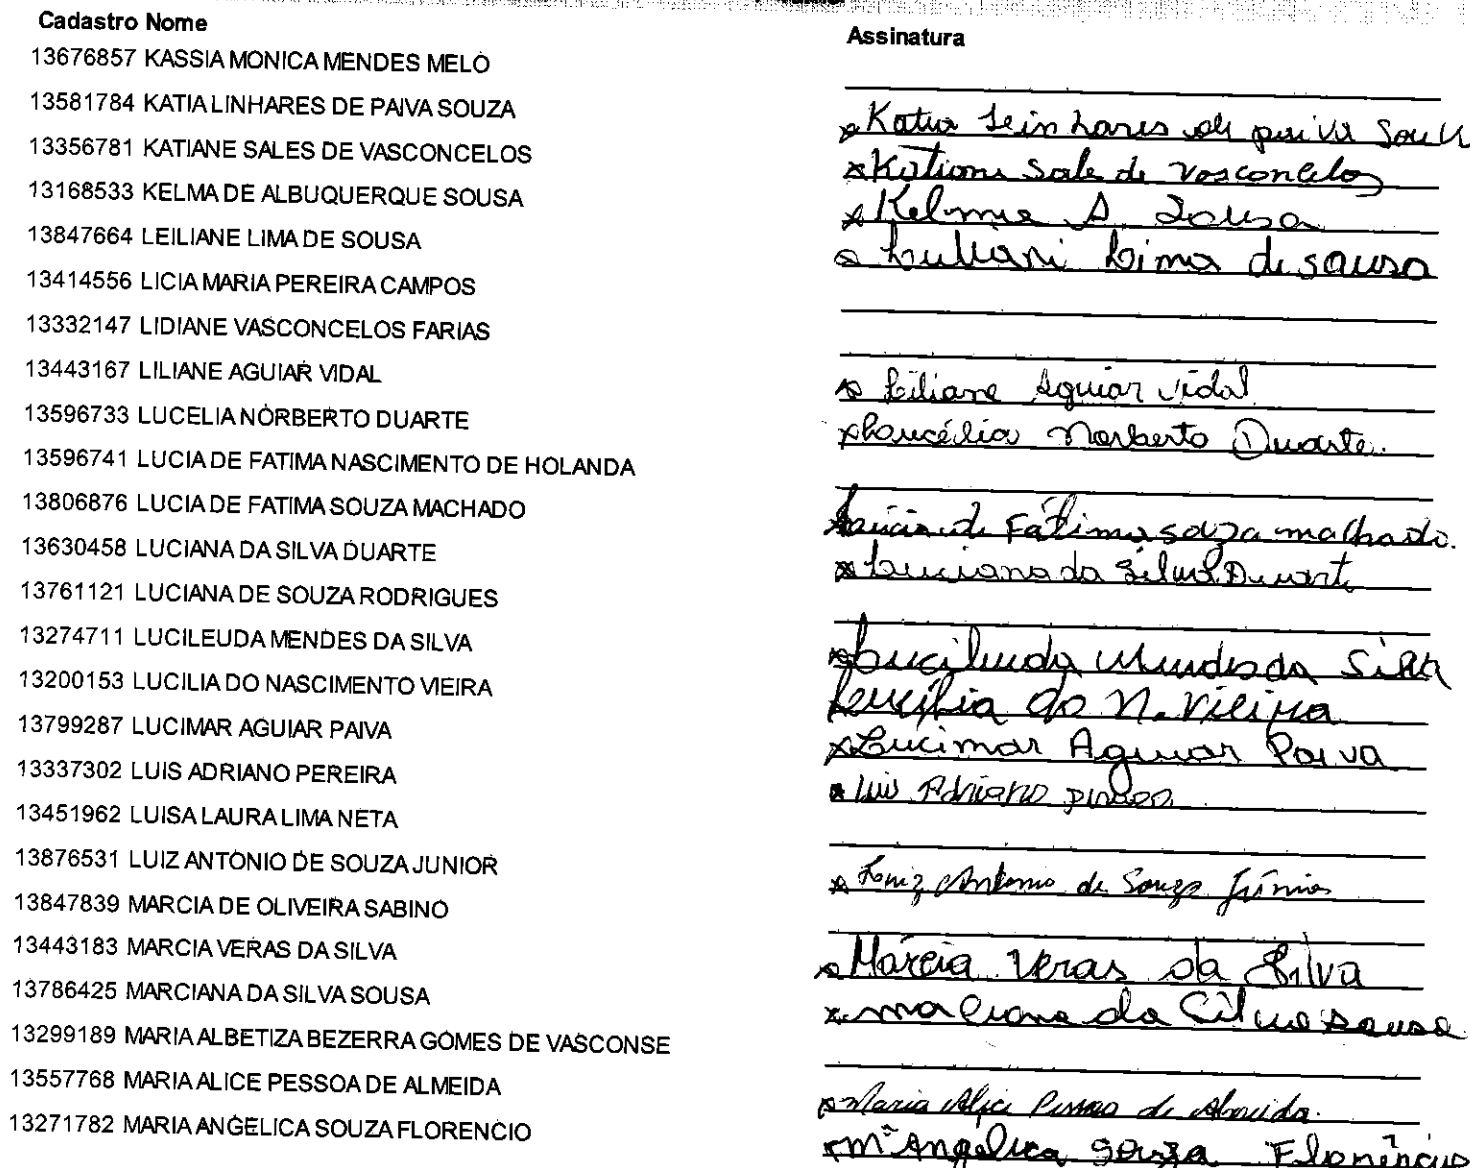 Cadastro Nome Assinatura
13676857 KASSIA MONICA MENDES MELO
13581784 KATIA LINHARES DE PAIVA SOUZA Katia Leinhares de
13356781 KATIANE SALES DE VASCONCELOS Katiane Sale de Vasconcelos
13168533 KELMA DE ALBUQUERQUE SOUSA Kelma A. Sousa
13847664 LEILIANE LIMA DE SOUSA Lima de sousa
13414556 LICIA MARIA PEREIRA CAMPOS
13332147 LIDIANE VASCONCELOS FARIAS
13443167 LILIANE AGUIAR VIDAL Liliane Aguiar Vidal
13596733 LUCELIA NORBERTO DUARTE Lucélia Norberto Duarte.
13596741 LUCIA DE FATIMA NASCIMENTO DE HOLANDA
13806876 LUCIA DE FATIMA SOUZA MACHADO Lúcia de Fátima machado.
13630458 LUCIANA DA SILVA DUARTE Luciana da Silva Duarte
13761121 LUCIANA DE SOUZA RODRIGUES
13274711 LUCILEUDA MENDES DA SILVA Mendes da Silva
13200153 LUCILIA DO NASCIMENTO VIEIRA Lucília do N. Vieira
13799287 LUCIMAR AGUIAR PAIVA Lucimar Aguiar Paiva
13337302 LUIS ADRIANO PEREIRA Luis Adriano
13451962 LUISA LAURA LIMA NETA
13876531 LUIZ ANTONIO DE SOUZA JUNIOR Luiz Antonio de Souza Júnior
13847839 MARCIA DE OLIVEIRA SABINO
13443183 MARCIA VERAS DA SILVA Márcia Veras da Silva
13786425 MARCIANA DA SILVA SOUSA da Silva Sousa
13299189 MARIA ALBETIZA BEZERRA GOMES DE VASCONSE
13557768 MARIA ALICE PESSOA DE ALMEIDA Maria Alice Pessoa de Almeida.
13271782 MARIA ANGELICA SOUZA FLORENCIO Mª Angelica Souza Florêncio